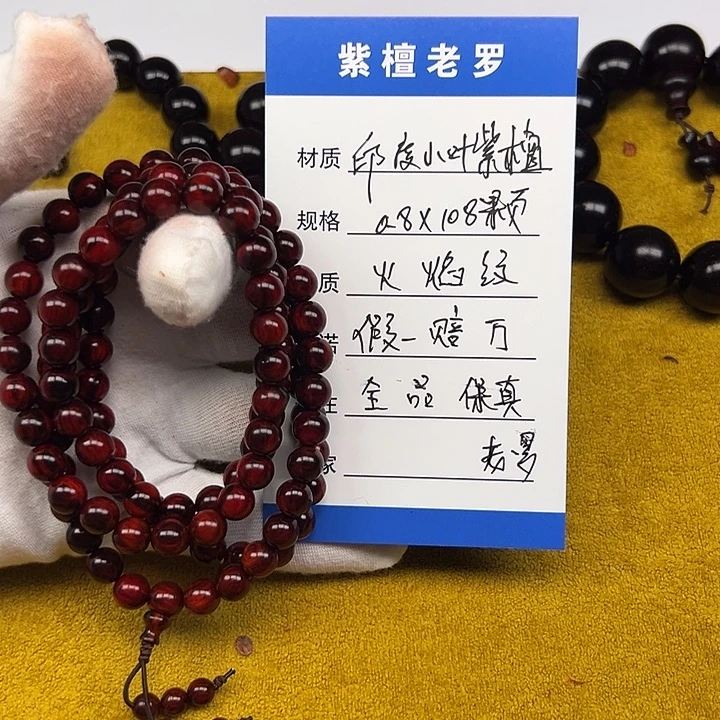 紫檀老罗
材质 印度小叶紫檀
规格 0.8×108颗
质 火焰纹
诺 假一赔万
全品保真
家 老罗